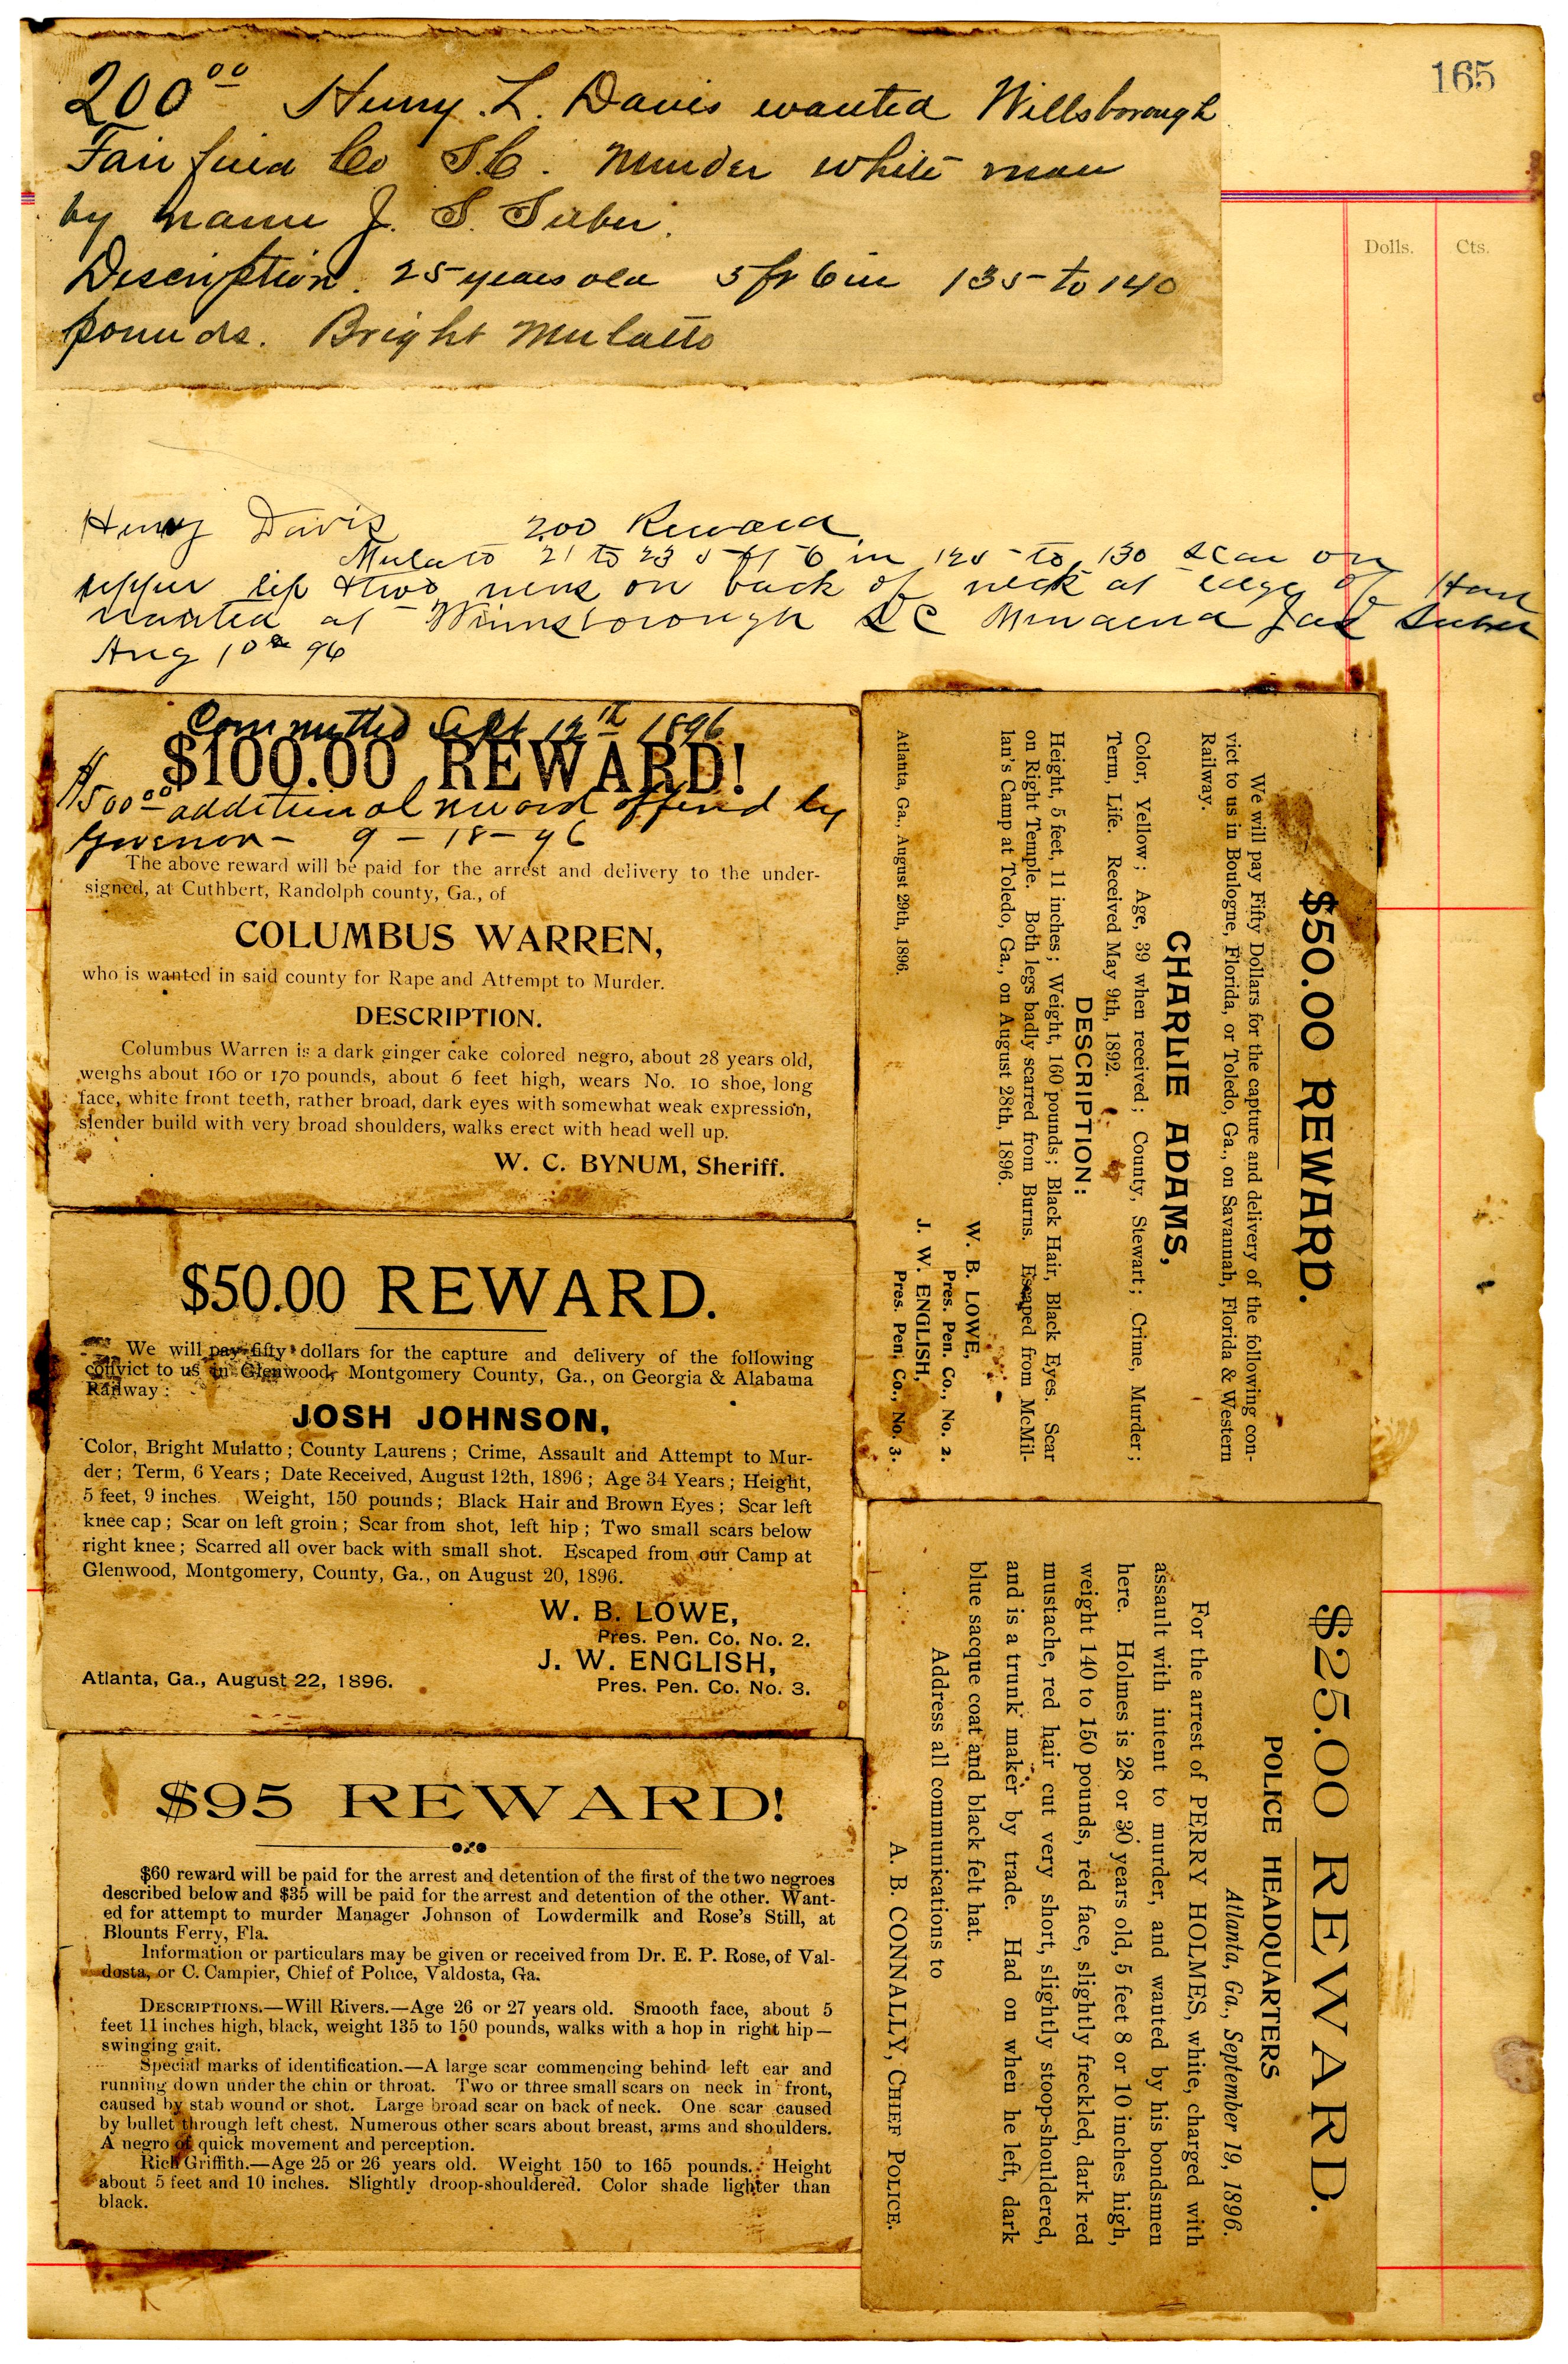 165
Dolls.
Cts.
200⁰⁰ Henry L. Davis wanted Willsborough
Fairfield Co S.C. Murder white man
by name J. S. Suber.
Description. 25 years old 5 ft 6 in 135 to 140
pounds. Bright Mulatto
Henry Davis 200 Reward
Mulato 21 to 23 5 ft 6 in 125 to 130 scar on
upper lip & two on back of neck at edge of Hair
wanted at Winnsborough SC Suber
Aug 10 96
Committed Sept 12th 1896
$100.00 REWARD!
$500⁰⁰ additional reward offered by
Governor — 9 - 18 - 96
The above reward will be paid for the arrest and delivery to the under-
signed, at Cuthbert, Randolph county, Ga., of
COLUMBUS WARREN,
who is wanted in said county for Rape and Attempt to Murder.
DESCRIPTION.
Columbus Warren is a dark ginger cake colored negro, about 28 years old,
weighs about 160 or 170 pounds, about 6 feet high, wears No. 10 shoe, long
face, white front teeth, rather broad, dark eyes with somewhat weak expression,
slender build with very broad shoulders, walks erect with head well up.
W. C. BYNUM, Sheriff.
$50.00 REWARD.
We will pay fifty dollars for the capture and delivery of the following
convict to us in Glenwood, Montgomery County, Ga., on Georgia & Alabama
Railway :
JOSH JOHNSON,
Color, Bright Mulatto ; County Laurens ; Crime, Assault and Attempt to Mur-
der ; Term, 6 Years ; Date Received, August 12th, 1896 ; Age 34 Years ; Height,
5 feet, 9 inches. Weight, 150 pounds ; Black Hair and Brown Eyes ; Scar left
knee cap ; Scar on left groin ; Scar from shot, left hip ; Two small scars below
right knee ; Scarred all over back with small shot. Escaped from our Camp at
Glenwood, Montgomery, County, Ga., on August 20, 1896.
W. B. LOWE,
Pres. Pen. Co. No. 2.
J. W. ENGLISH,
Pres. Pen. Co. No. 3.
Atlanta, Ga., August 22, 1896.
$95 REWARD!
$60 reward will be paid for the arrest and detention of the first of the two negroes
described below and $35 will be paid for the arrest and detention of the other. Want-
ed for attempt to murder Manager Johnson of Lowdermilk and Rose's Still, at
Blounts Ferry, Fla.
Information or particulars may be given or received from Dr. E. P. Rose, of Val-
dosta, or C. Campier, Chief of Police, Valdosta, Ga.
DESCRIPTIONS.—Will Rivers.—Age 26 or 27 years old. Smooth face, about 5
feet 11 inches high, black, weight 135 to 150 pounds, walks with a hop in right hip—
swinging gait.
Special marks of identification.—A large scar commencing behind left ear and
running down under the chin or throat. Two or three small scars on neck in front,
caused by stab wound or shot. Large broad scar on back of neck. One scar caused
by bullet through left chest. Numerous other scars about breast, arms and shoulders.
A negro of quick movement and perception.
Rich Griffith.—Age 25 or 26 years old. Weight 150 to 165 pounds. Height
about 5 feet and 10 inches. Slightly droop-shouldered. Color shade lighter than
black.
$50.00 REWARD.
We will pay Fifty Dollars for the capture and delivery of the following con-
vict to us in Boulogne, Florida, or Toledo, Ga., on Savannah, Florida & Western
Railway.
CHARLIE ADAMS,
Color, Yellow ; Age, 39 when received ; County, Stewart ; Crime, Murder ;
Term, Life. Received May 9th, 1892.
DESCRIPTION:
Height, 5 feet, 11 inches ; Weight, 160 pounds ; Black Hair, Black Eyes. Scar
on Right Temple. Both legs badly scarred from Burns. Escaped from McMil-
lan's Camp at Toledo, Ga., on August 28th, 1896.
W. B. LOWE,
Pres. Pen. Co., No. 2.
J. W. ENGLISH,
Pres. Pen. Co., No. 3.
Atlanta, Ga., August 29th, 1896.
$25.00 REWARD.
POLICE HEADQUARTERS
Atlanta, Ga., September 19, 1896.
For the arrest of PERRY HOLMES, white, charged with
assault with intent to murder, and wanted by his bondsmen
here. Holmes is 28 or 30 years old, 5 feet 8 or 10 inches high,
weight 140 to 150 pounds, red face, slightly freckled, dark red
mustache, red hair cut very short, slightly stoop-shouldered,
and is a trunk maker by trade. Had on when he left, dark
blue sacque coat and black felt hat.
Address all communications to
A. B. CONNALLY, CHIEF POLICE.